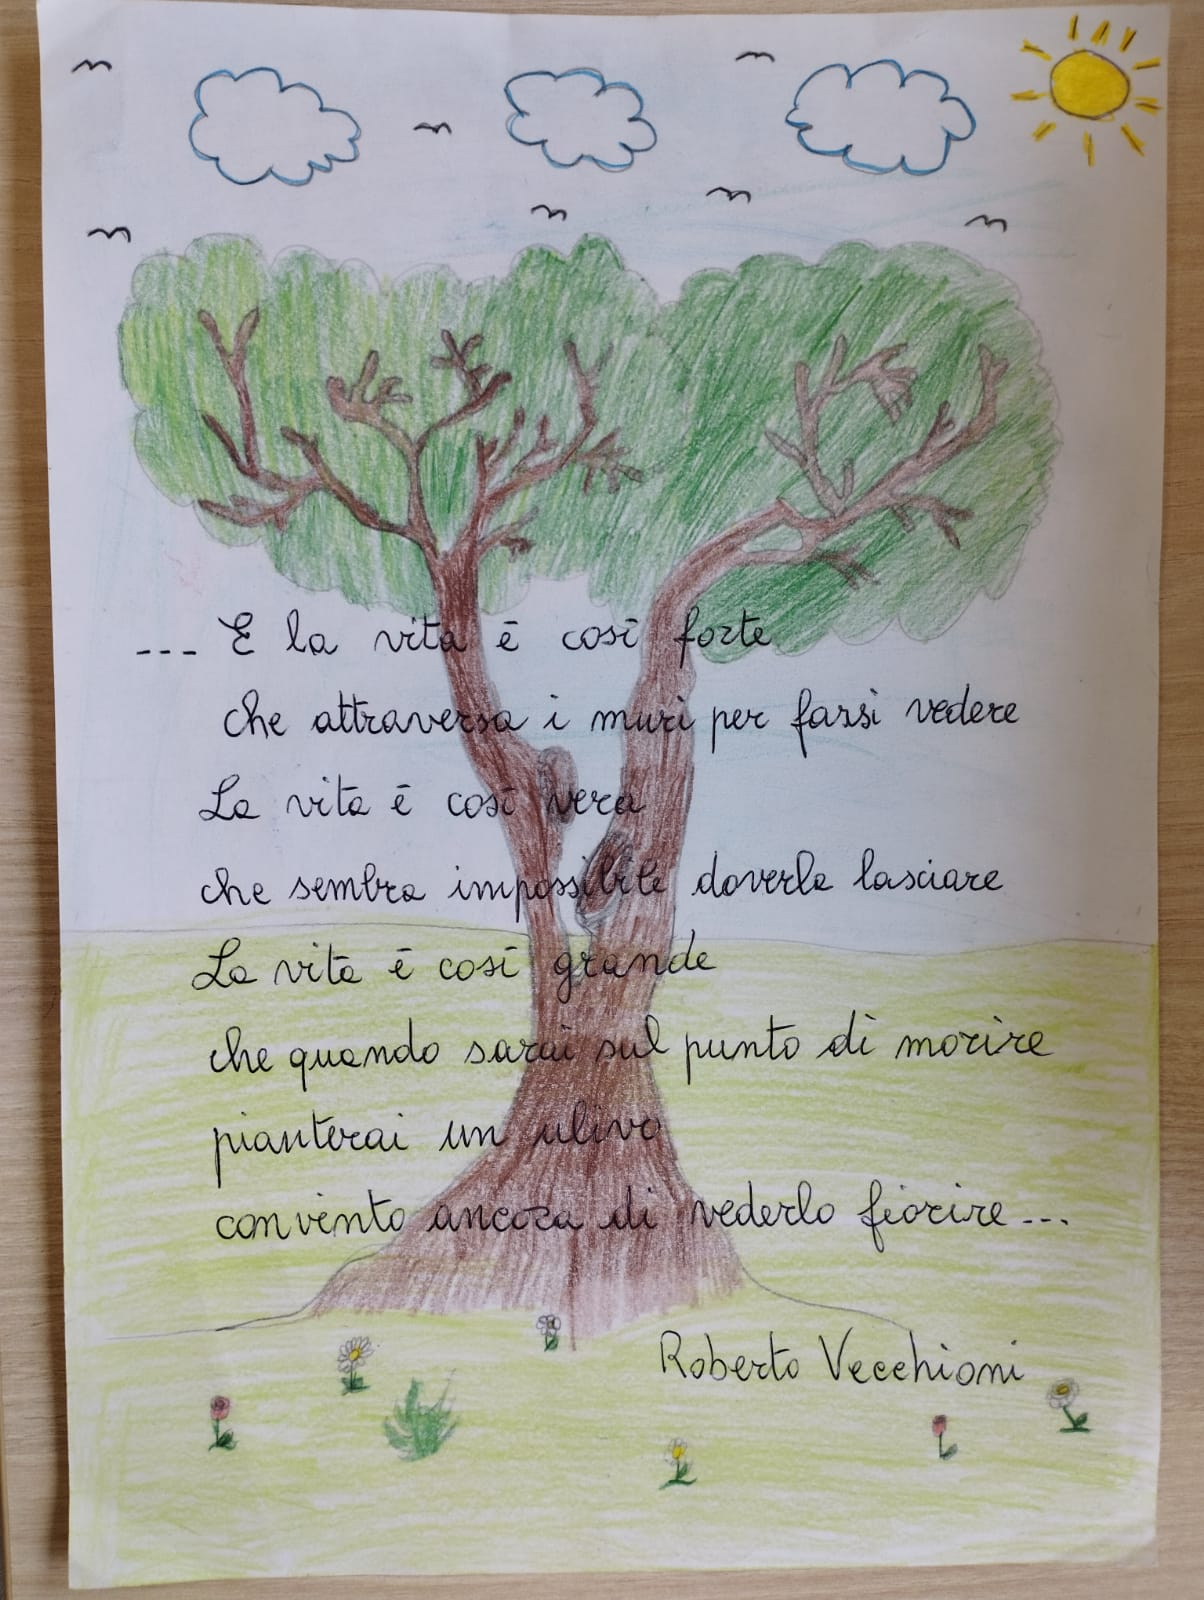 --- E la vita è così forte
che attraversa i muri per farsi vedere
La vita è così vera
che sembra impossibile doverla lasciare
La vita è così grande
che quando sarai sul punto di morire
pianterai un ulivo
convinto ancora di vederlo fiorire ...
Roberto Vecchioni